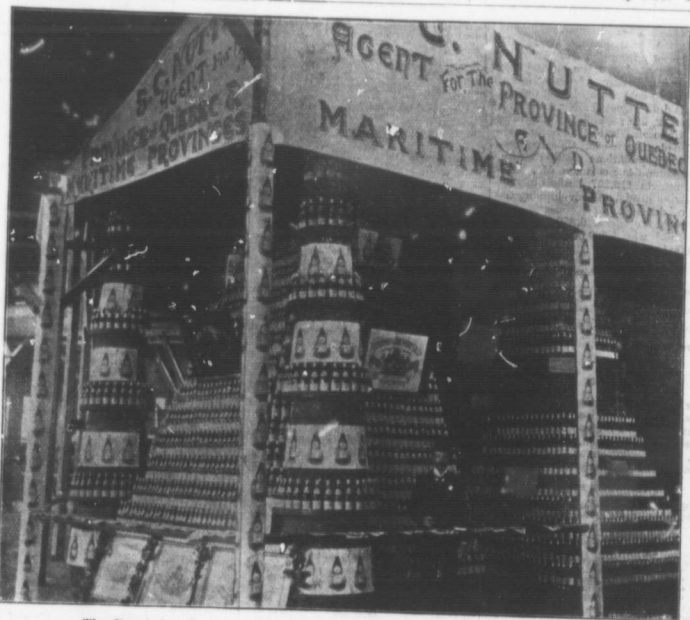 S. C. NUTT
AGENT For The
PROVINCE of QUEBEC &
MARITIME PROVINCES
C. NUTTE
AGENT For The PROVINCE of QUEBEC
AND
MARITIME PROVIN